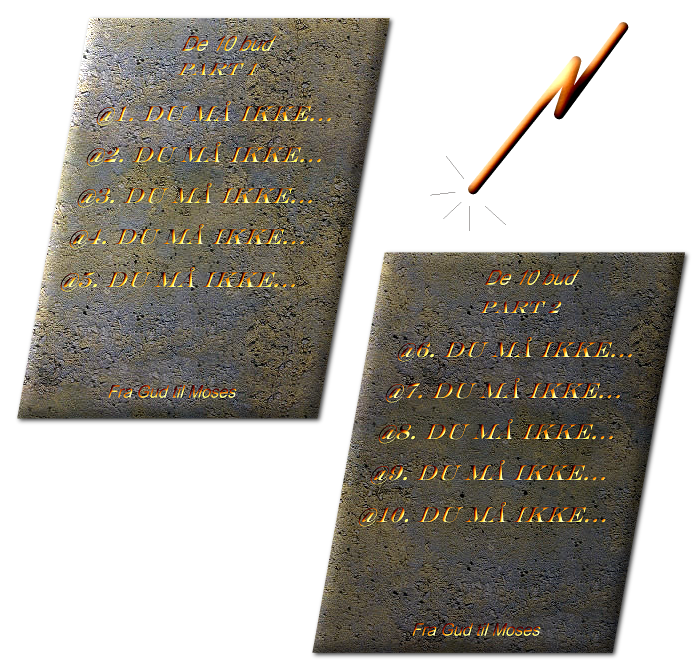 De 10 bud
PART 1
@1. DU MÅ IKKE...
@2. DU MÅ IKKE...
@3. DU MÅ IKKE...
@4. DU MÅ IKKE...
@5. DU MÅ IKKE...
Fra Gud til Moses
De 10 bud
PART 2
@6. DU MÅ IKKE...
@7. DU MÅ IKKE...
@8. DU MÅ IKKE...
@9. DU MÅ IKKE...
@10. DU MÅ IKKE...
Fra Gud til Moses